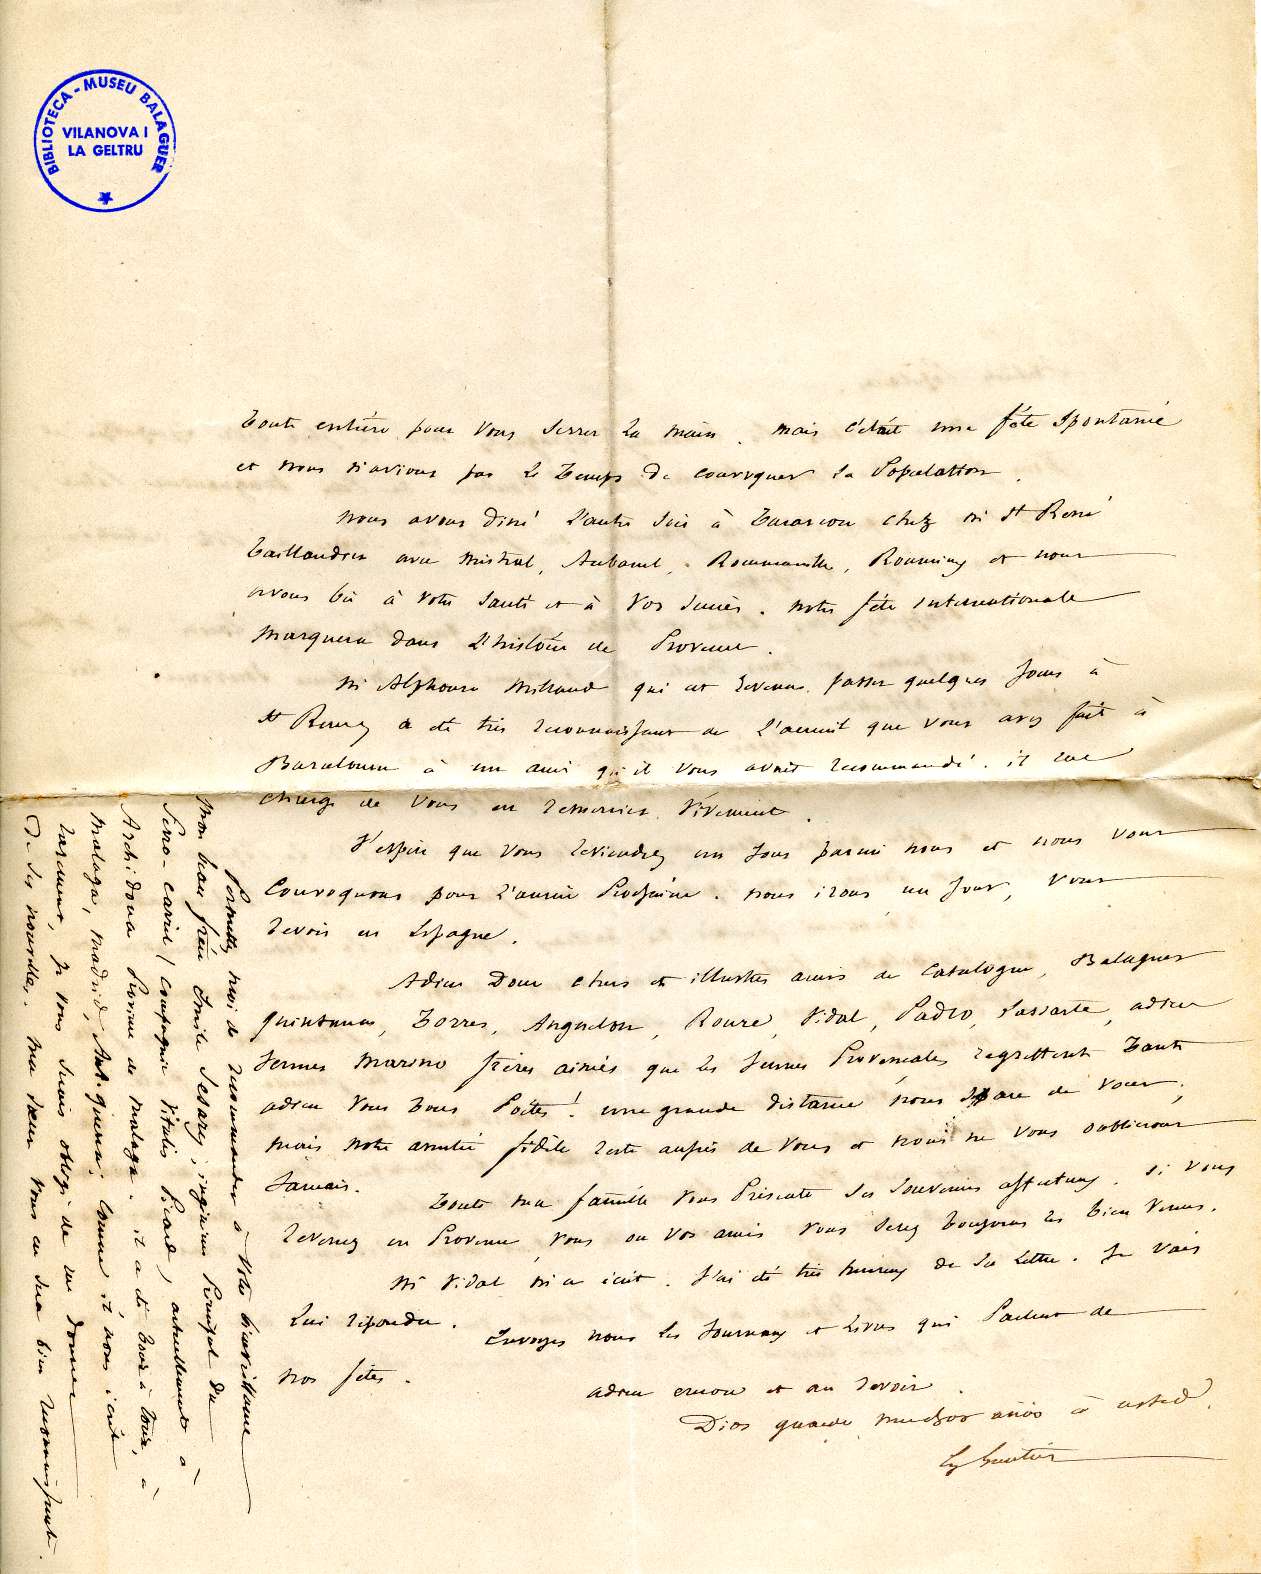 BIBLIOTECA - MUSEU BALAGUER
VILANOVA I
LA GELTRU
toute entière pour vous serrer la main. mais c'était une fête spontanée
et nous n'avions pas le temps de convoquer la Population.
nous avons diné l'autre soir à Tarascon chez Mr St René
Taillandier avec Mistral, Aubanel, Roumanille, Roumieux et nous
avons bu à votre santé et à vos succès. notre fête internationale
marquera dans l'histoire de Provence.
Mr Alphonse Millaud qui est revenu passer quelques jours à
St Remy a été très reconnaissant de l'accueil que vous avez fait à
Barcelonne à un ami qu'il vous avait recommandé. il me
charge de vous en remercier vivement.
J'espère que vous reviendrez un jour parmi nous et nous vous
convoquons pour l'année Prochaine. nous irons, un jour, vous
revoir en Espagne.
Adieu Donc chers et illustres amis de Catalogne, Balaguer
Quintanas, Torres, Anguelon, Roure, Vidal, Padro, Lassarte, adieu
jeunes Marino frères aimés que les jeunes Provencales regrettent tant
adieu vous tous Poëtes! une grande distance nous separe de vous;
mais notre amitié fidèle reste auprès de vous et nous ne vous oublierons
jamais.
Toute ma famille vous Présente ses souvenirs affectueux. si vous
revenez en Provence, vous ou vos amis vous serez toujours les bien venus.
Mr Vidal m'a écrit. J'ai été très heureux de sa lettre. Je vais
lui répondre.
Envoyez nous les Journaux et Livres qui Parlent de
nos fêtes.
adieu encore et au revoir.
Dios guarde muchos años à usted.
Lg Gautier
Permettez moi de recommander à votre bienveillance
mon beau frère Emile Lesage; ingénieur Principal du
Ferro-carril (compagnie Vitalis Picard) actuellement à
Archidona Province de Malaga. il a dû tour à tour, à
Malaga, Madrid, Antequera. Comme il nous écrit
rarement, je vous serais obligé de me donner
de ses nouvelles. ma sœur vous en sera bien reconnaissante.